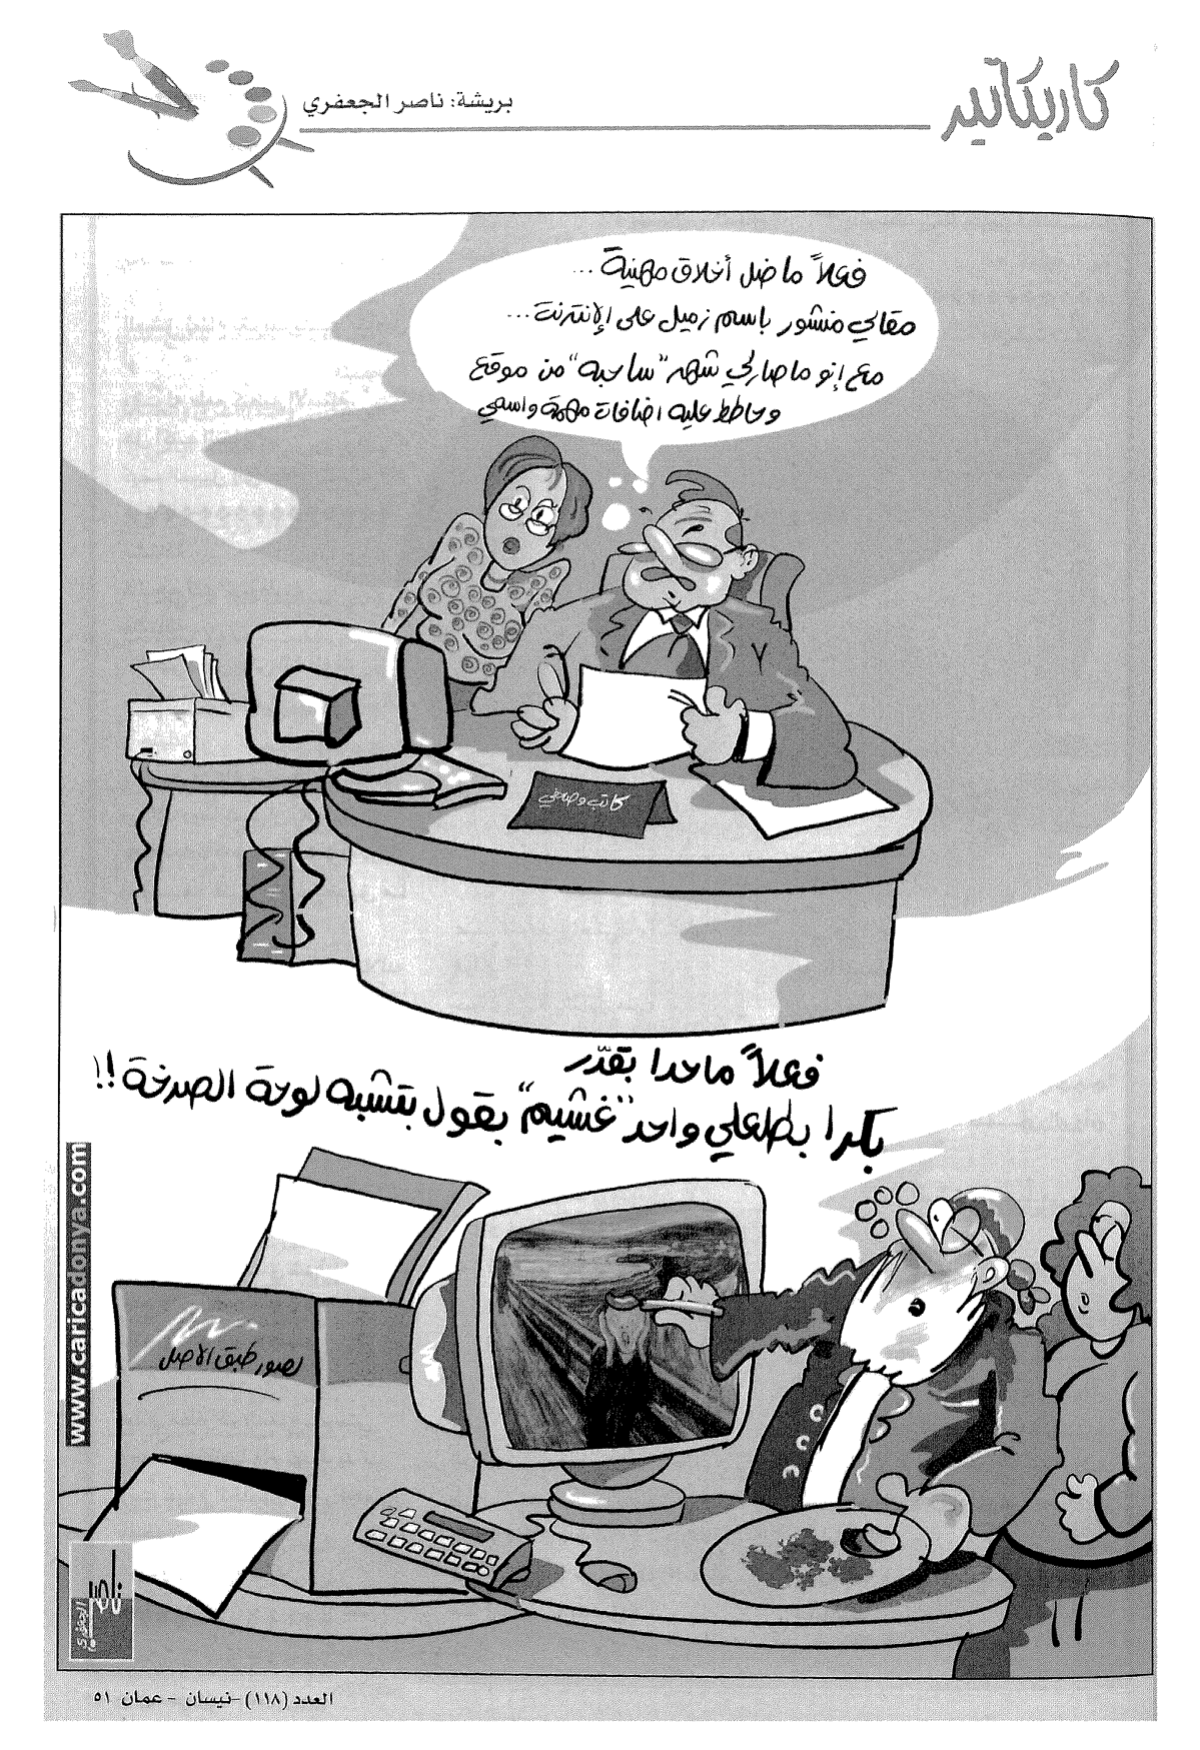 كاريكاتير
بريشة: ناصر الجعفري
فعلاً ما ضل أخلاق مهنية...
مقالي منشور باسم زميل على الإنترنت...
مع إنو ما صارلي شهر "ساحبه" من موقع
وحاطط عليه اضافات مهمة واسمي
كاتب وصحفي
فعلاً ما حدا بقدّر
بكرا بطلعلي واحد "غشيم" بقول بتشبه لوحة الصرخة!!
www.caricadonya.com
صور طبق الاصل
ناصر
الجعفري
العدد (١١٨) -نيسان - عمان ٥١